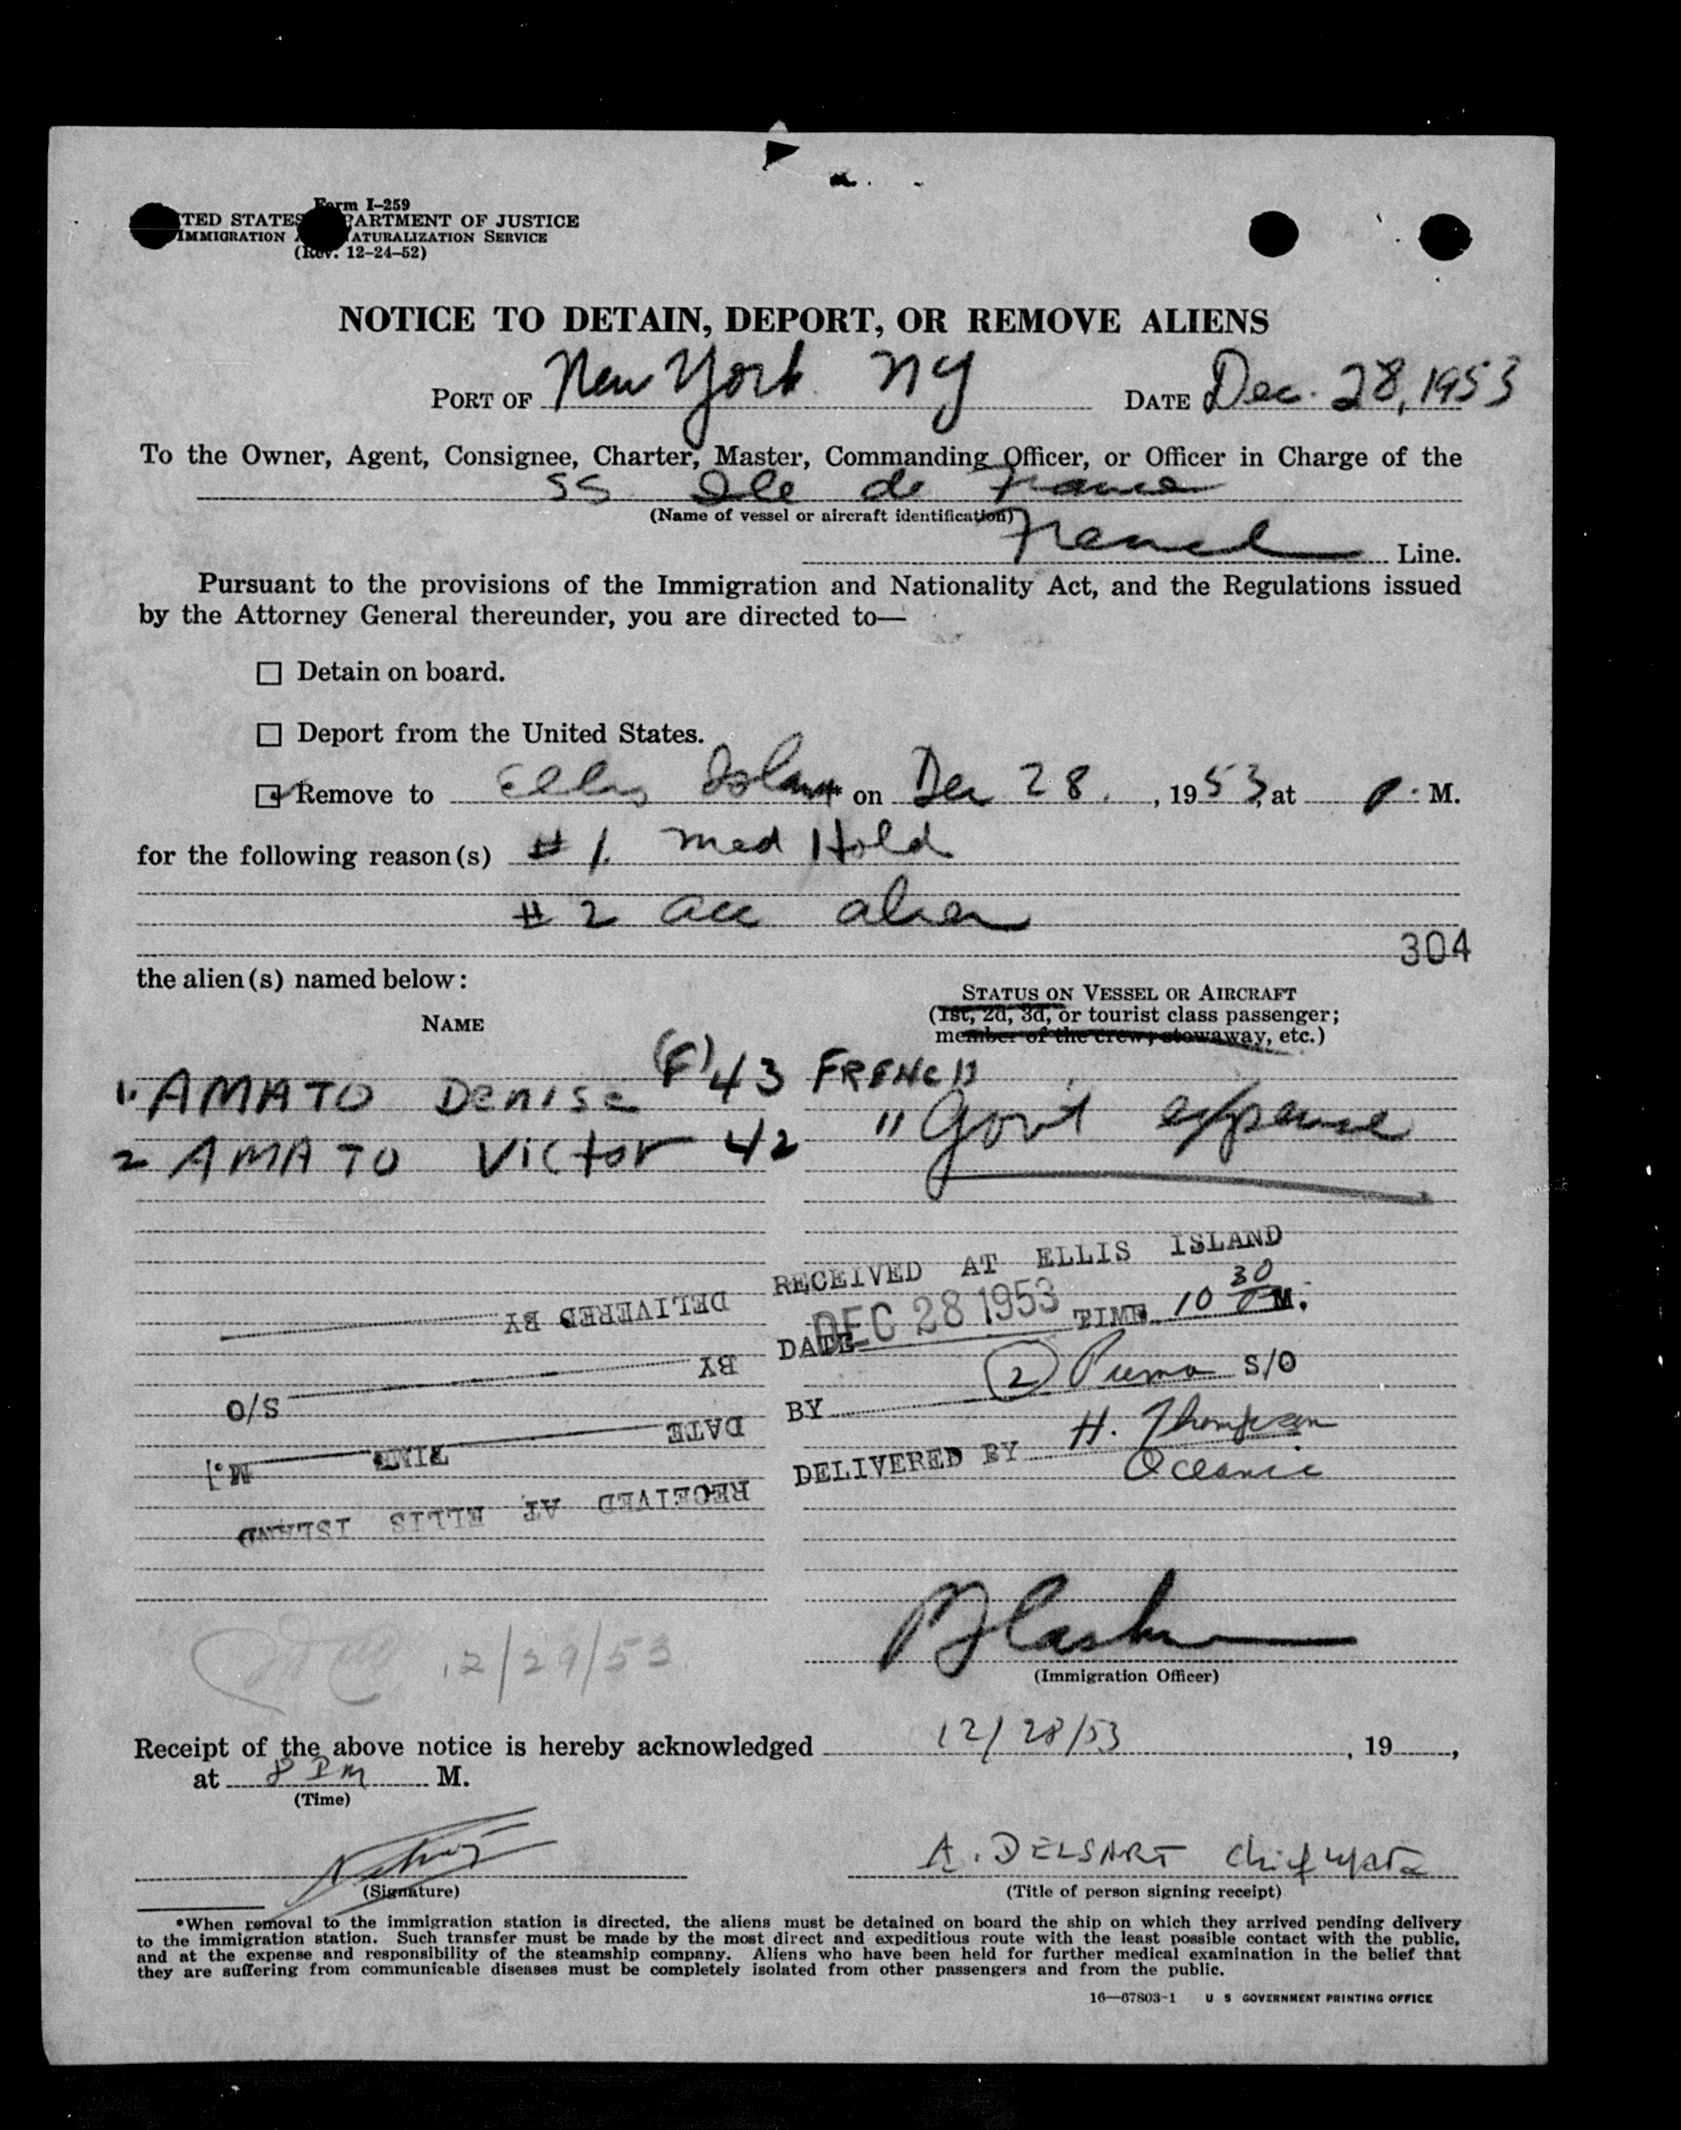 Form I-259
TED STATES PARTMENT OF JUSTICE
IMMIGRATION A ATURALIZATION SERVICE
(Rev. 12-24-52)
NOTICE TO DETAIN, DEPORT, OR REMOVE ALIENS
PORT OF New York NY DATE Dec. 28, 1953
To the Owner, Agent, Consignee, Charter, Master, Commanding Officer, or Officer in Charge of the
SS Ile de France
(Name of vessel or aircraft identification)
French Line.
Pursuant to the provisions of the Immigration and Nationality Act, and the Regulations issued
by the Attorney General thereunder, you are directed to—
Detain on board.
Deport from the United States.
Remove to Ellis Island on Dec 28, 1953, at P. M.
for the following reason(s) # 1. Med Hold
# 2 acc alien
304
the alien(s) named below:
STATUS ON VESSEL OR AIRCRAFT
(1st, 2d, 3d, or tourist class passenger;
member of the crew; stowaway, etc.)
NAME
1. AMATO Denise (F) 43 FRENCH
2 AMATO Victor 42 " Govt expense
RECEIVED AT ELLIS ISLAND
DATE DEC 28 1953 TIME 10 30 P M.
BY (2) S/O
DELIVERED BY H. Thompson
Oceanic
DELIVERED BY
BY S/O
DATE TIME M.
RECEIVED AT ELLIS ISLAND
12/29/53
(Immigration Officer)
Receipt of the above notice is hereby acknowledged 12/28/53, 19 ,
at 8 PM M.
(Time)
A. DELSART Chief
(Signature) (Title of person signing receipt)
*When removal to the immigration station is directed, the aliens must be detained on board the ship on which they arrived pending delivery
to the immigration station. Such transfer must be made by the most direct and expeditious route with the least possible contact with the public,
and at the expense and responsibility of the steamship company. Aliens who have been held for further medical examination in the belief that
they are suffering from communicable diseases must be completely isolated from other passengers and from the public.
16—67803-1 U S GOVERNMENT PRINTING OFFICE